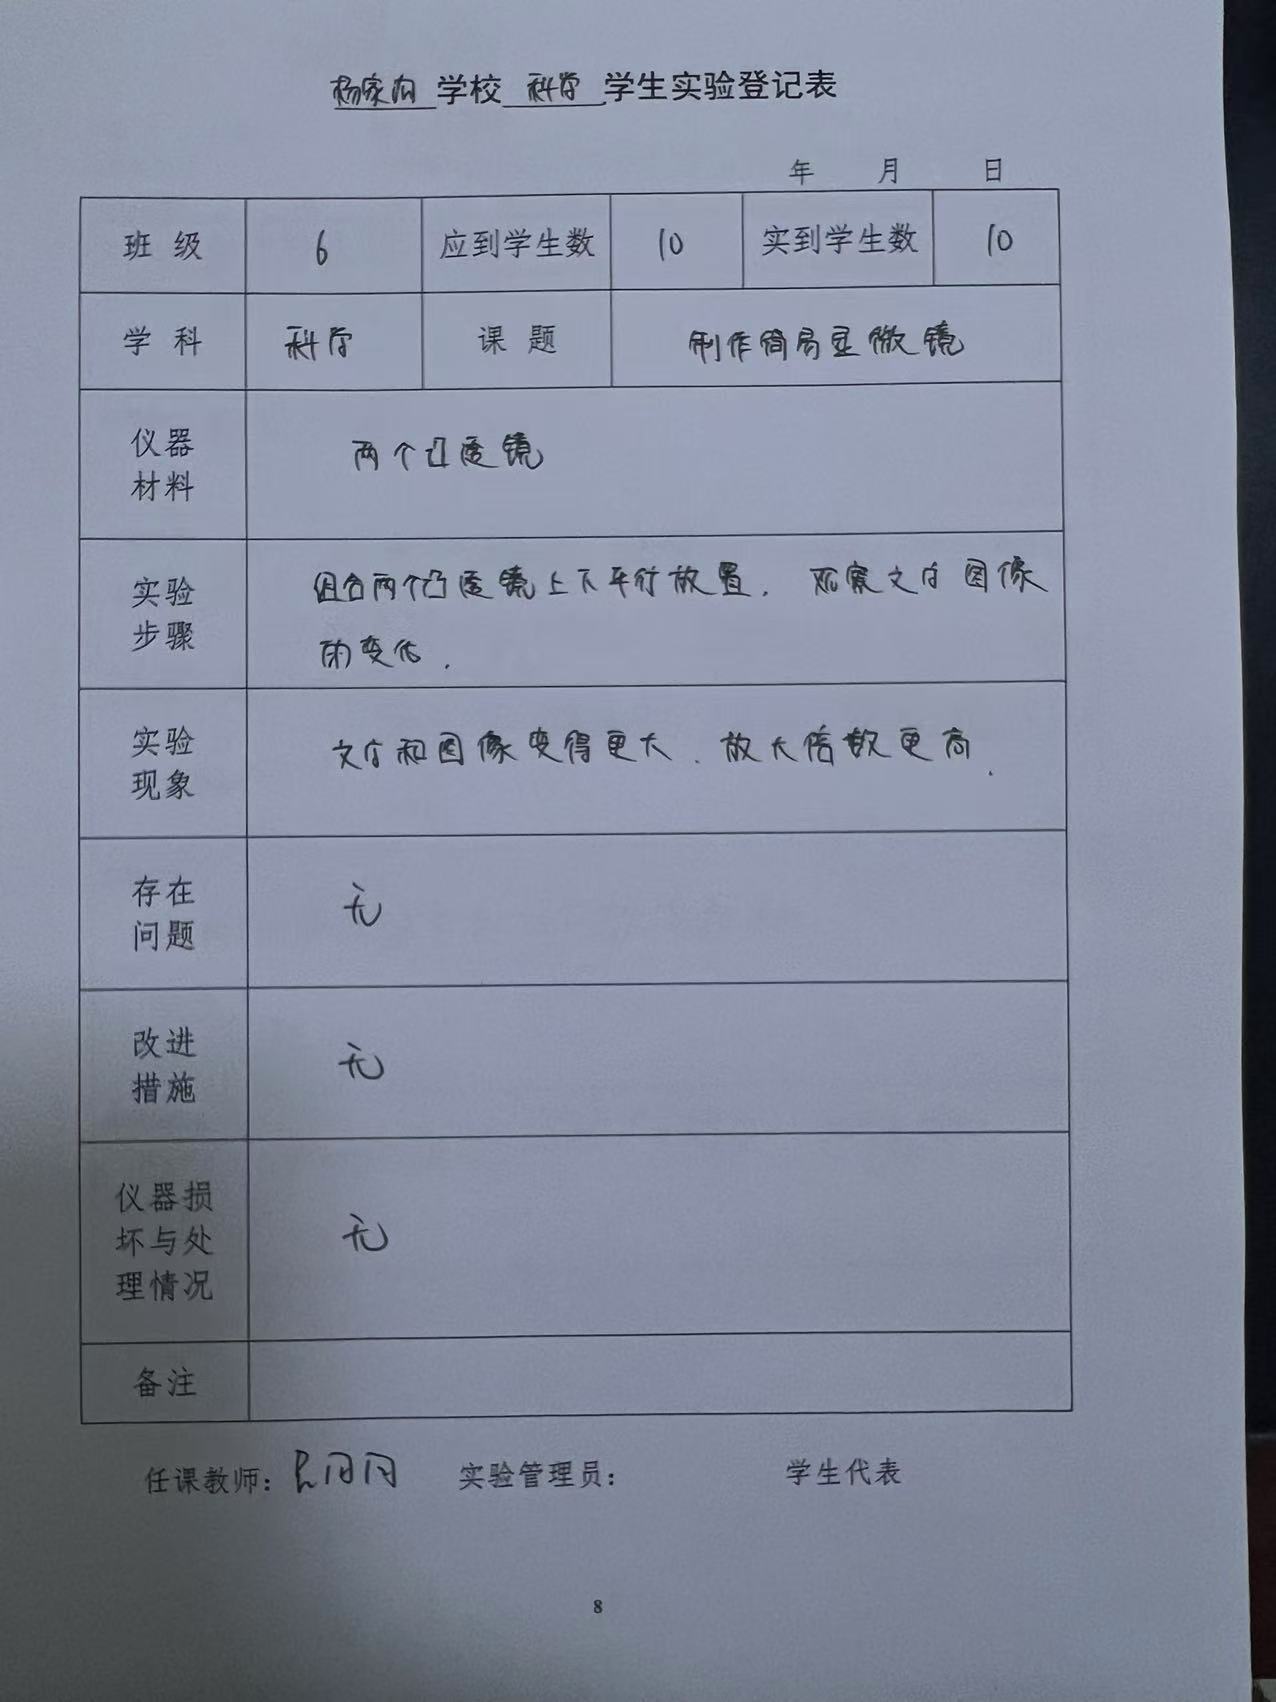 杨家沟 学校 科学 学生实验登记表
年 月 日
班 级 6 应到学生数 10 实到学生数 10
学 科 科学 课 题 制作简易显微镜
仪器
材料
两个凸透镜
实验
步骤
组合两个凸透镜上下平行放置. 观察文字图像
的变化.
实验
现象
文字和图像变得更大、放大倍数更高.
存在
问题
无
改进
措施
无
仪器损
坏与处
理情况
无
备注
任课教师: 实验管理员: 学生代表
8